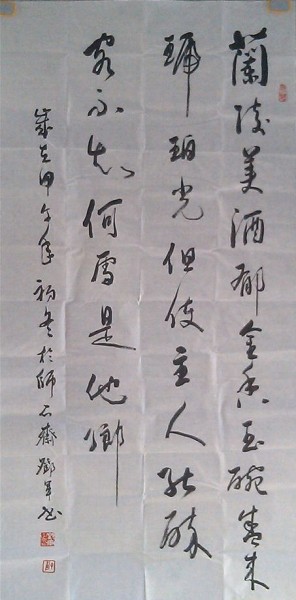 蘭陵美酒郁金香玉碗盛来
琥珀光但使主人能醉
客不知何處是他鄉
歲在甲午年初冬於師石齋鄧军书